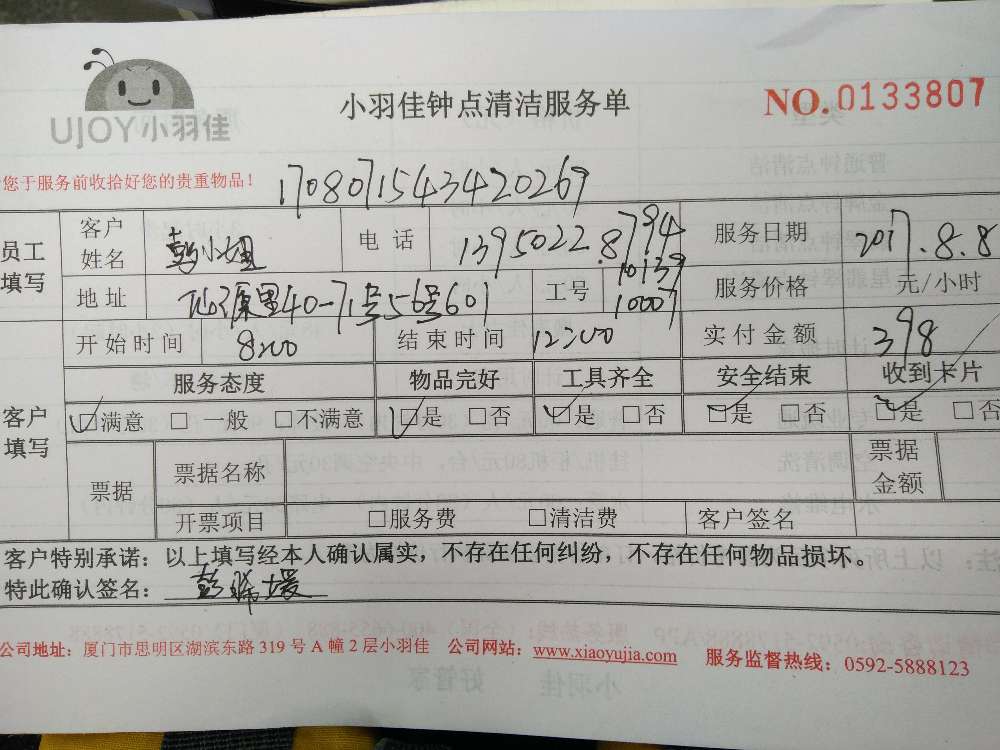 UJOY小羽佳
小羽佳钟点清洁服务单
NO.0133807
您于服务前收拾好您的贵重物品！
1708071543420269
员工填写
客户姓名 彭小姐 电话 13950228794 服务日期 2017.8.8
地址 仙源里40-71号56号601 工号 10139 10007 服务价格 元/小时
开始时间 8:00 结束时间 12:00 实付金额 398
客户填写
服务态度 物品完好 工具齐全 安全结束 收到卡片
☑满意 □一般 □不满意 ☑是 □否 ☑是 □否 ☑是 □否 ☑是 □否
票据 票据名称 票据金额
开票项目 □服务费 □清洁费 客户签名
客户特别承诺：以上填写经本人确认属实，不存在任何纠纷，不存在任何物品损坏。
特此确认签名：彭 媛
公司地址：厦门市思明区湖滨东路 319 号 A 幢 2 层小羽佳 公司网站：www.xiaoyujia.com 服务监督热线：0592-5888123